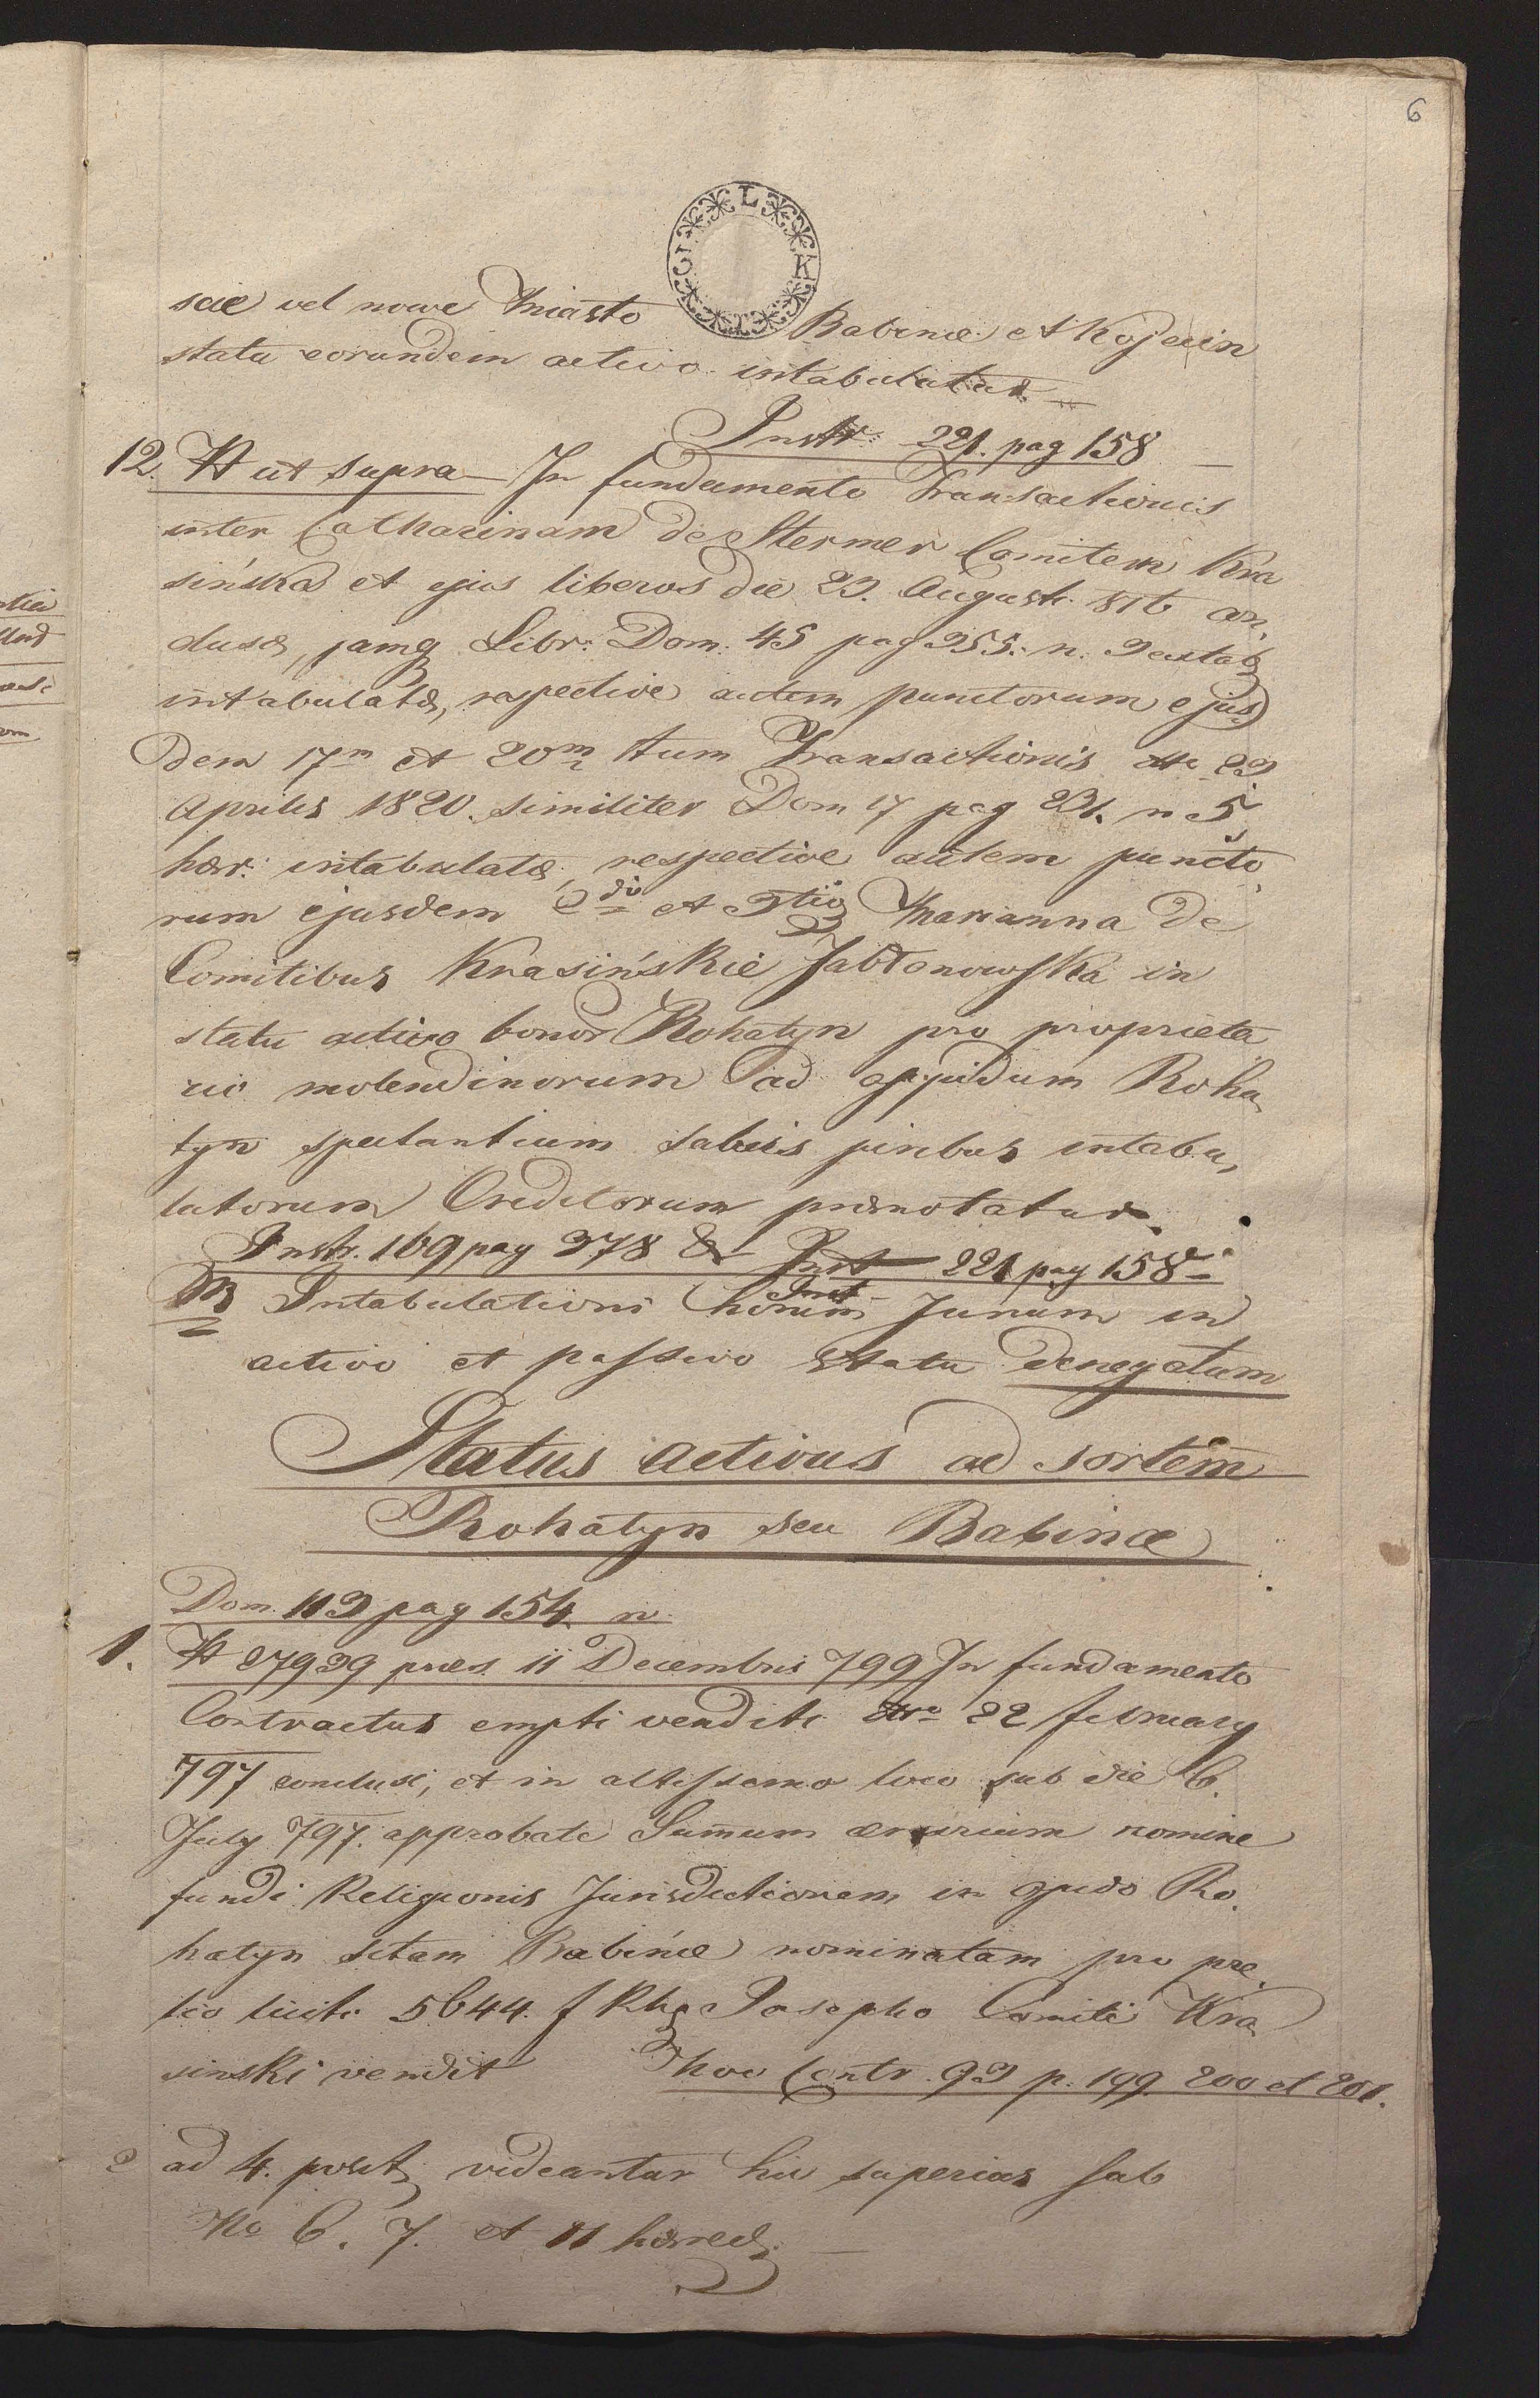 6
scie vel nowe Miasto Babince et Kojecin
statu eorundem activo intabulatur
Instr: 221. pag 158
12. N ut supra In fundamento Transactionis
inter Catharinam de Stermer Comitem Kra
sińska et ejus liberos die 23. Augusti 816 con
clusæ, jamq Libr: Dom: 45 pag 255. n. 3 extab
intabulatæ, respective autem punctorum ejus
dem 17m et 20m tum Transactionis ddo 29
Aprilis 1820. similiter Dom 17 pag 231. n 5
hær: intabulatæ, respective autem puncto
rum ejusdem 2di et 3tii Marianna de
Comitibus Krasińskie Jabłonowska in
statu activo bonor Rohatyn pro proprieta
ria molendinorum ad oppidum Roha
tyn spectantium salvis juribus intabu
latorum Creditorum prænotatur.
Instr. 169 pag 378 & Inst 221 pag 158
NB Intabulationi horum Jurium in
activo et passivo statu denegatum
Status activus ad sortem
Rohatyn seu Babince
Dom. 113 pag 154. n.
1. N 27939 præs. 11 Decembris 799 In fundamento
Contractus empti venditi ddo 22 february
797 conclusi, et in altissimo loco sub die 6.
July 797. approbati Summum ærarium nomine
fundi Religionis Jurisdictionem in oppido Ro
hatyn sitam Babińce nominatam pro pre
tio liciti 5644 f Rhe Josepho Comiti Kra
sinski vendit nov Contr. 93 p. 199. 200 et 201.
2 ad 4. post videantur hic superius sub
No 6. 7. et 11 hæred